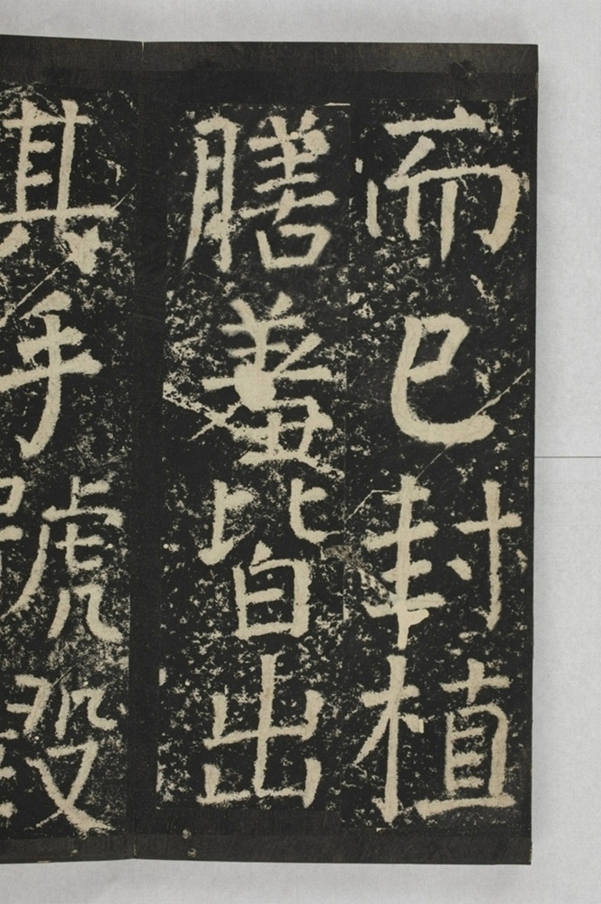 而已封植
膳羞皆出
其手號毀